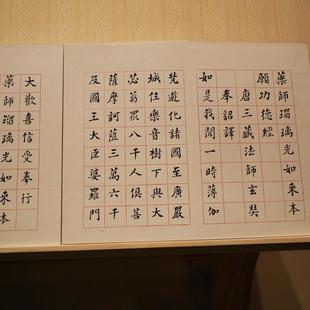 藥師瑠璃光如來本
願功德經
唐三藏法師玄奘
奉詔譯
如是我聞一時薄伽
梵遊化諸國至廣嚴
城住樂音樹下與大
苾芻眾八千人俱菩
薩摩訶薩三萬六千
及國王大臣婆羅門
大歡喜信受奉行
藥師瑠璃光如來本